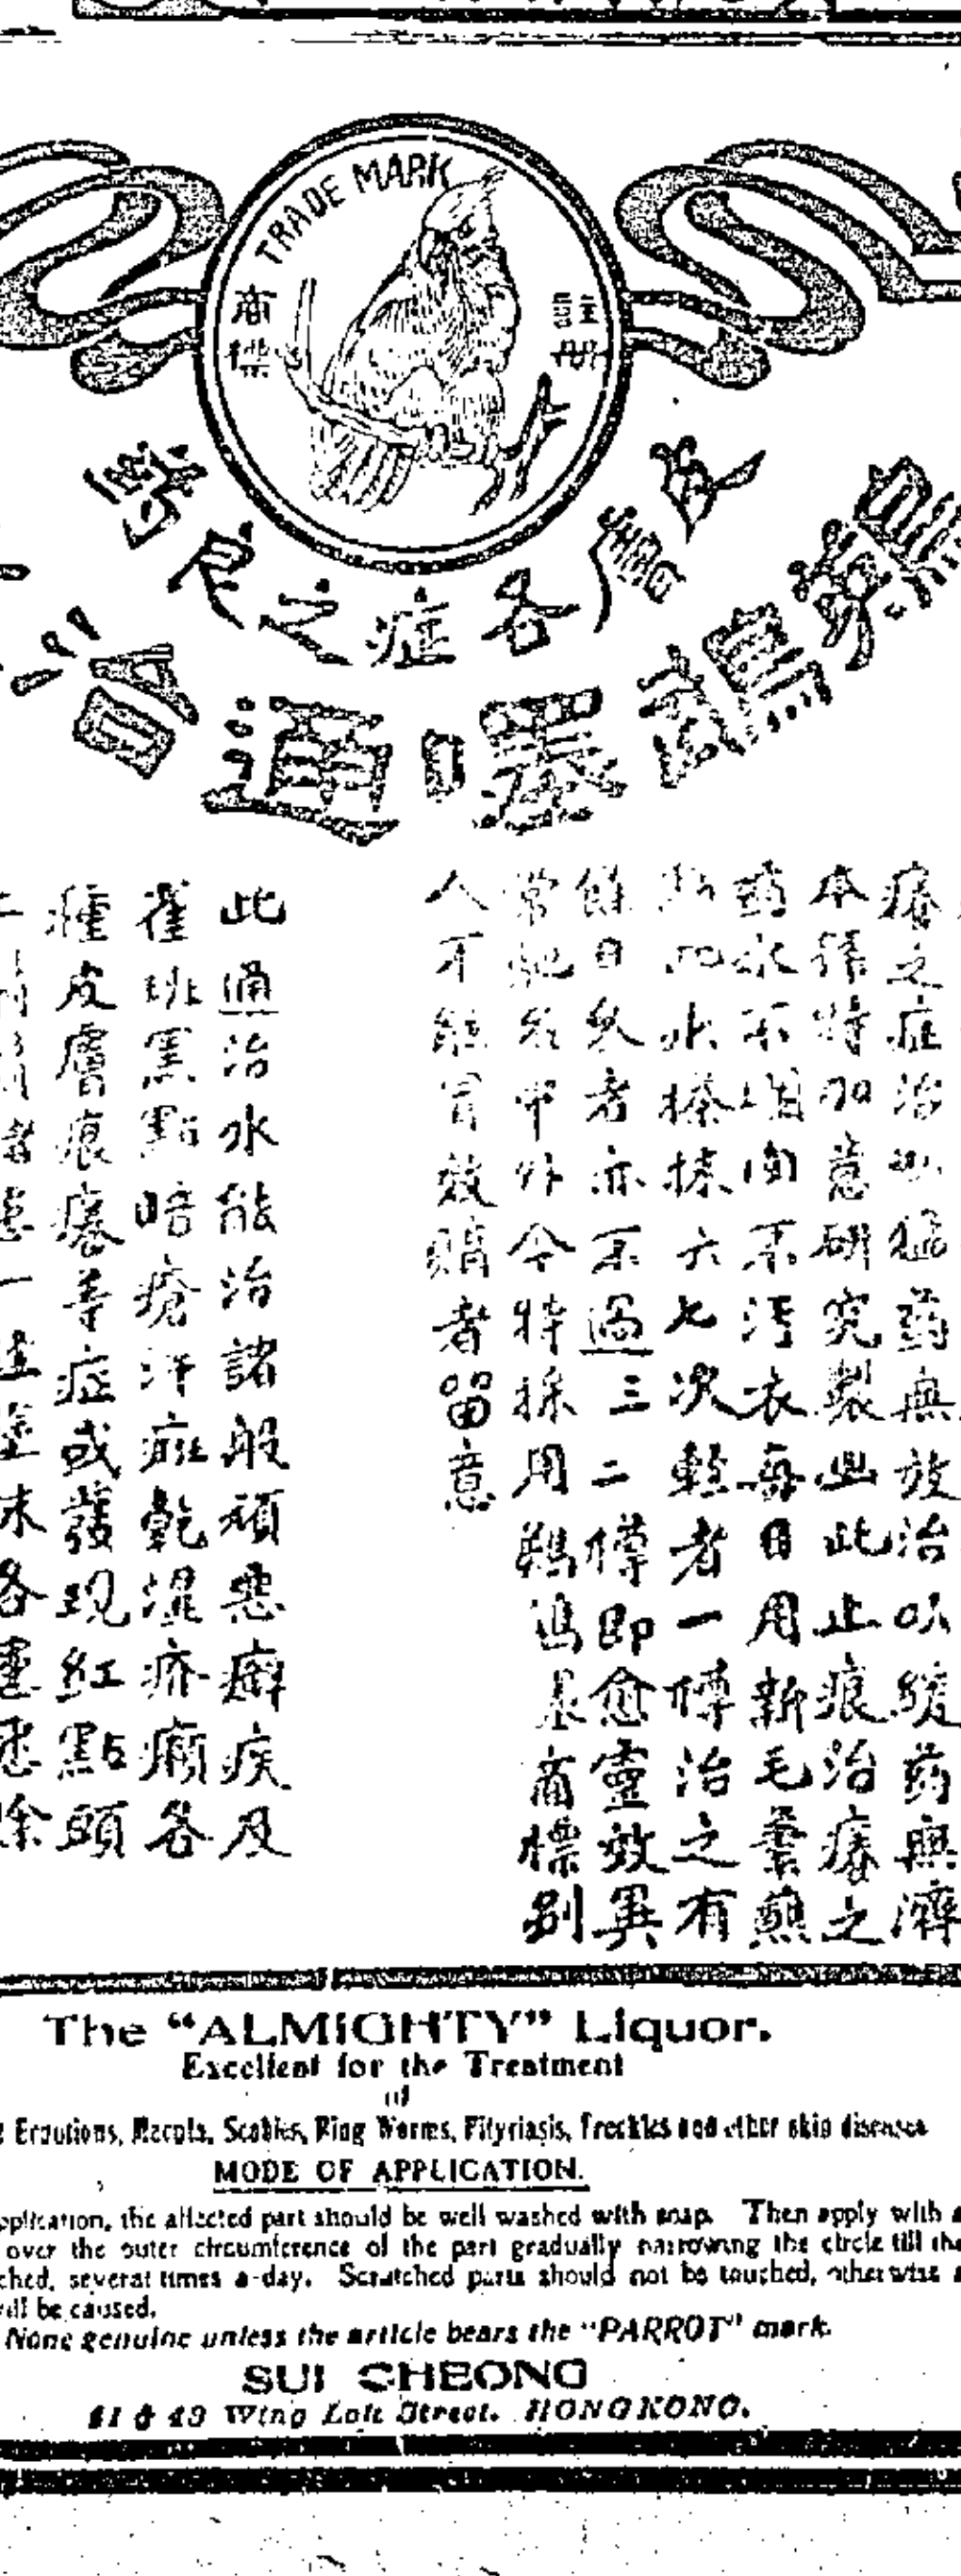 TRADE MARK
註册
商標
皮膚各症之良
鸚鵡嘜通治
癢之症治以猛药無放治以緩药無濟
本號特加意研究製出此止痕治癢之
药水不損肉不污衣每日用新毛筆蘸
如此搽抹六七次輕者一樽治之有
餘日久者亦不過三二樽即愈靈效異
常馳名中外今特採用鸚鵡為商標別
人不能冒效購者留意
此通治水能治諸般頑惡癬疾及
雀斑黑點暗瘡汗疵乾濕疥癩各
種皮膚痕癢等症或發現紅點頭
The "ALMIGHTY" Liquor.
Excellent for the Treatment
of
Eruptions, Macula, Scabies, Ring Worms, Pityriasis, Freckles and other skin diseases
MODE OF APPLICATION.
the affected part should be well washed with soap. Then apply with
over the outer circumference of the part gradually narrowing the circle till the
several times a-day. Scratched parts should not be touched, otherwise
will be caused.
None genuine unless the article bears the "PARROT" mark.
SUI CHEONG
Wing Lok Street. HONGKONG.